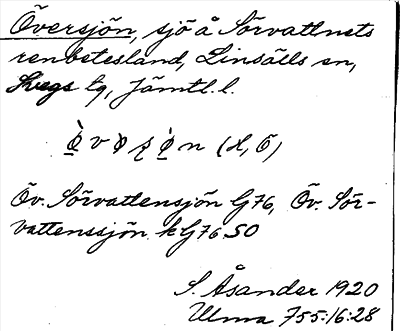 Översjön, sjö å Sörvattnets
renbetesland, Linsälls sn,
Svegs tg, Jämtl. l.
Öv. Sörvattensjön G76, Öv. Sör-
vattenssjön kG76 SO
S. Åsander 1920
Ulma 755:16:28